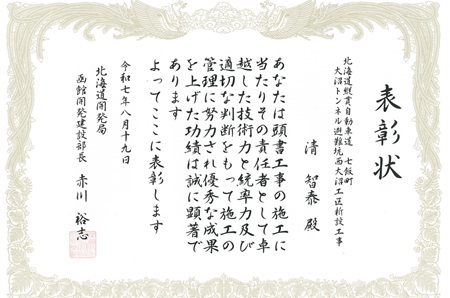 表彰状
北海道縦貫自動車道 七飯町
大沼トンネル避難坑西大沼工区新設工事
清 智泰 殿
あなたは頭書工事の施工に
当たりその責任者として卓
越した技術力と統率力及び
適切な判断をもって施工の
管理に努力され優秀な成果
を上げた功績は誠に顕著で
あります
よってここに表彰します
令和七年八月十九日
北海道開発局
函館開発建設部長 赤川 裕志